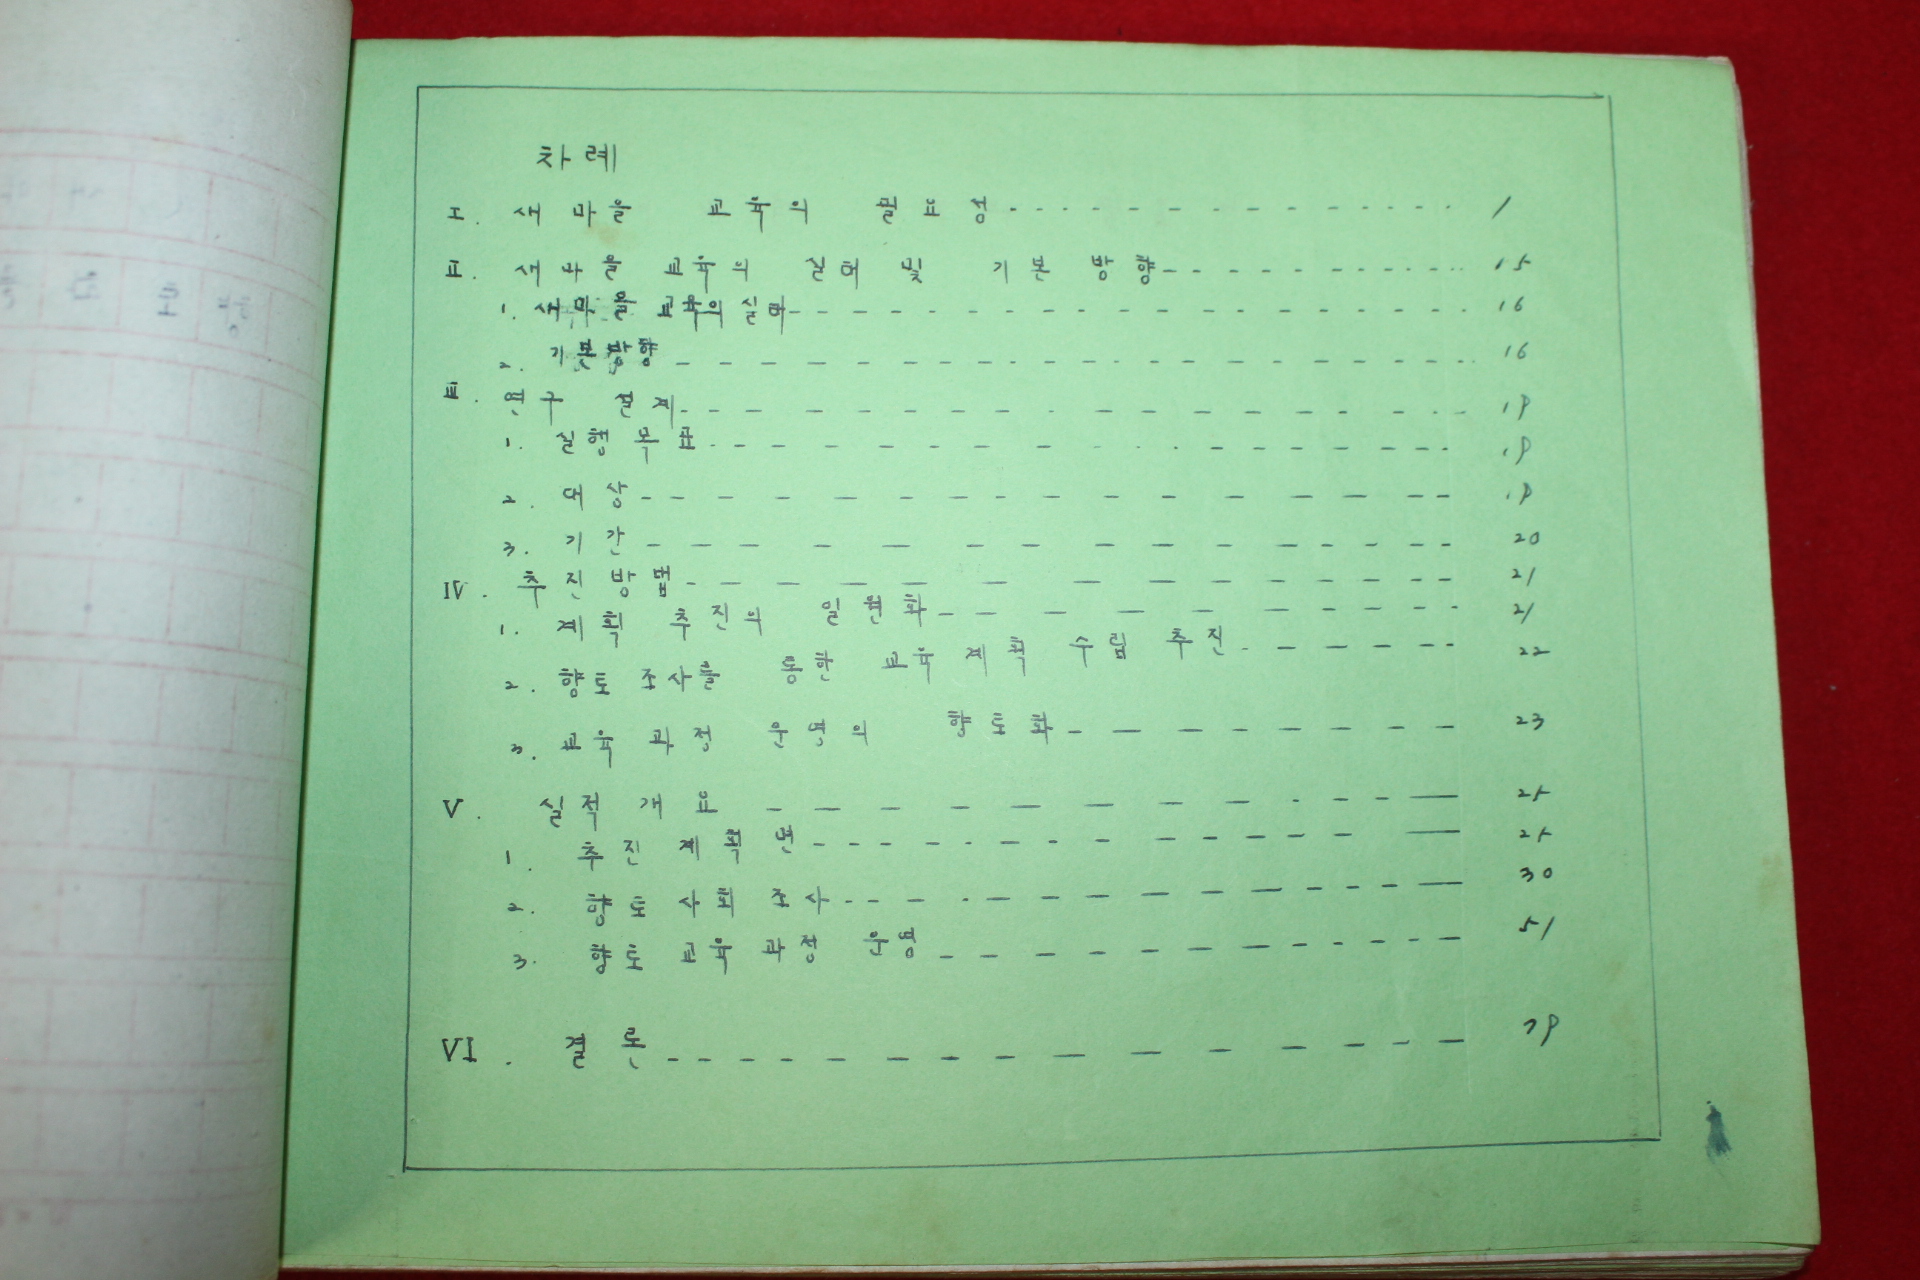 차례
I. 새마을 교육의 필요성 1
II. 새마을 교육의 실태 및 기본 방향 15
1. 새마을 교육의 실태 16
2. 기본방향 16
III. 연구 설계 19
1. 실행 목표 19
2. 대상 19
3. 기간 20
IV. 추진방법 21
1. 계획 추진의 일원화 21
2. 향토 조사를 통한 교육 계획 수립 추진 22
3. 교육 과정 운영의 향토화 23
V. 실적 개요 25
1. 추진 계획면 25
2. 향토 사회 조사 30
3. 향토 교육 과정 운영 51
VI. 결론 79